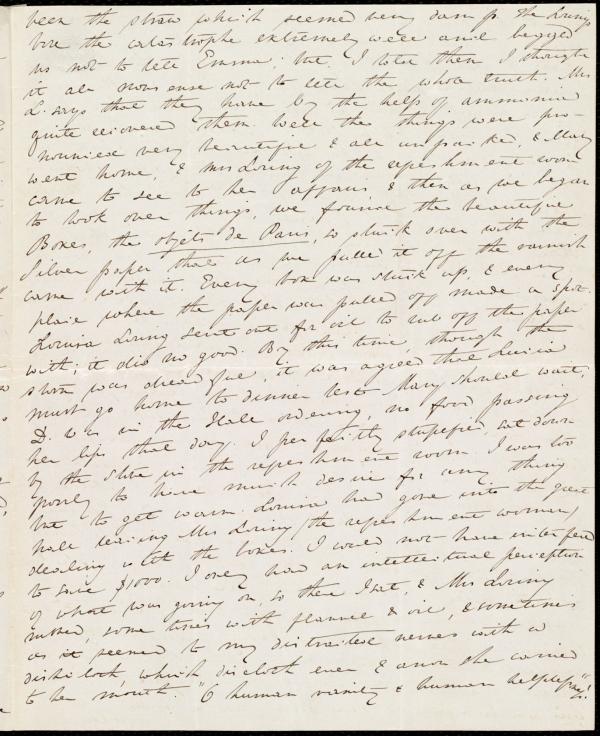 been the straw which seemed very damp. The Lorings
bore the catastrophe extremely well and begged
us not to tell Emma; but I told them I thought
it all nonsense not to tell the whole truth. Mrs
L. says that they have by the help of ammonia
quite recovered them. Well the things were pro-
nounced very beautiful & all unpacked, & Mary
went home, & Mrs Loring of the refreshment room
came to see to her affairs & then as we began
to look over things, we found the beautiful
Boxes, the objets de Paris, so stuck over with the
silver paper that as we pulled it off the varnish
came with it. Every box was stuck up, & every
place where the paper was pulled off made a spot.
Louisa Loring sent out for oil to rub off the paper
with; it did no good. By this time, though the
storm was dreadful, it was agreed that Louisa
must go home to dinner lest Mary should wait,
D. was in the Hall ordering, no food passing
her lips that day. I perfectly stupefied, sat down
by the stove in the refreshment room. I was too
poorly to have much desire for any thing
but to get warm. Louisa had gone into the great
hall leaving Mrs Loring (the refreshment woman)
dealing with the boxes. I could not have interfered
to save $1000. I only had an intellectual perception
of what was going on so there I sat, & Mrs Loring
rubbed, some times with flannel & oil, & sometimes
as it seemed to my distracted nerves with a
dishcloth, which discloth ever & anon she carried
to her mouth. "O human vanity & human helplessness"!